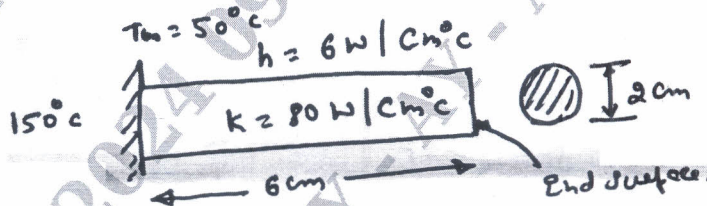 T∞ = 50°c
h = 6 W | Cm°c
150°c
K = 80 W | Cm°c
2 cm
6 cm
End surface.